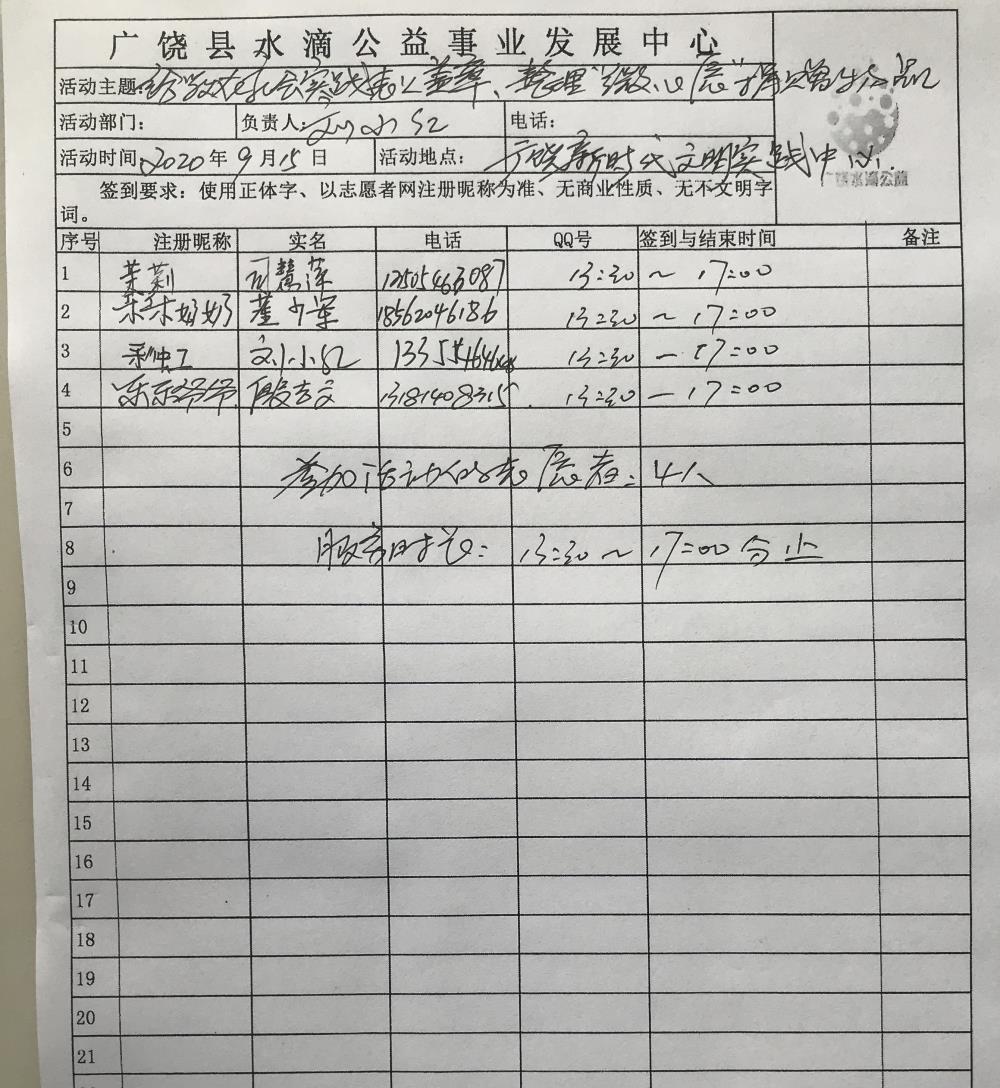 广饶县水滴公益事业发展中心
活动主题:给学校社会实践表盖章、整理"微心愿"捐赠物品
活动部门: 负责人:刘小红 电话:
活动时间:2020年9月15日 活动地点:广饶新时代文明实践中心
广饶水滴公益
签到要求：使用正体字、以志愿者网注册昵称为准、无商业性质、无不文明字
词。
序号 注册昵称 实名 电话 QQ号 签到与结束时间 备注
1 茉莉 13:30 ~ 17:00
2 乐乐奶奶 18562046186 13:30 ~ 17:00
3 刘小红 13:30 — 17:00
4 乐乐爷爷 13181408315 13:30 — 17:00
5
6 参加活动的志愿者:4人
7
8 服务时长: 13:30 ~ 17:00 分止
9
10
11
12
13
14
15
16
17
18
19
20
21